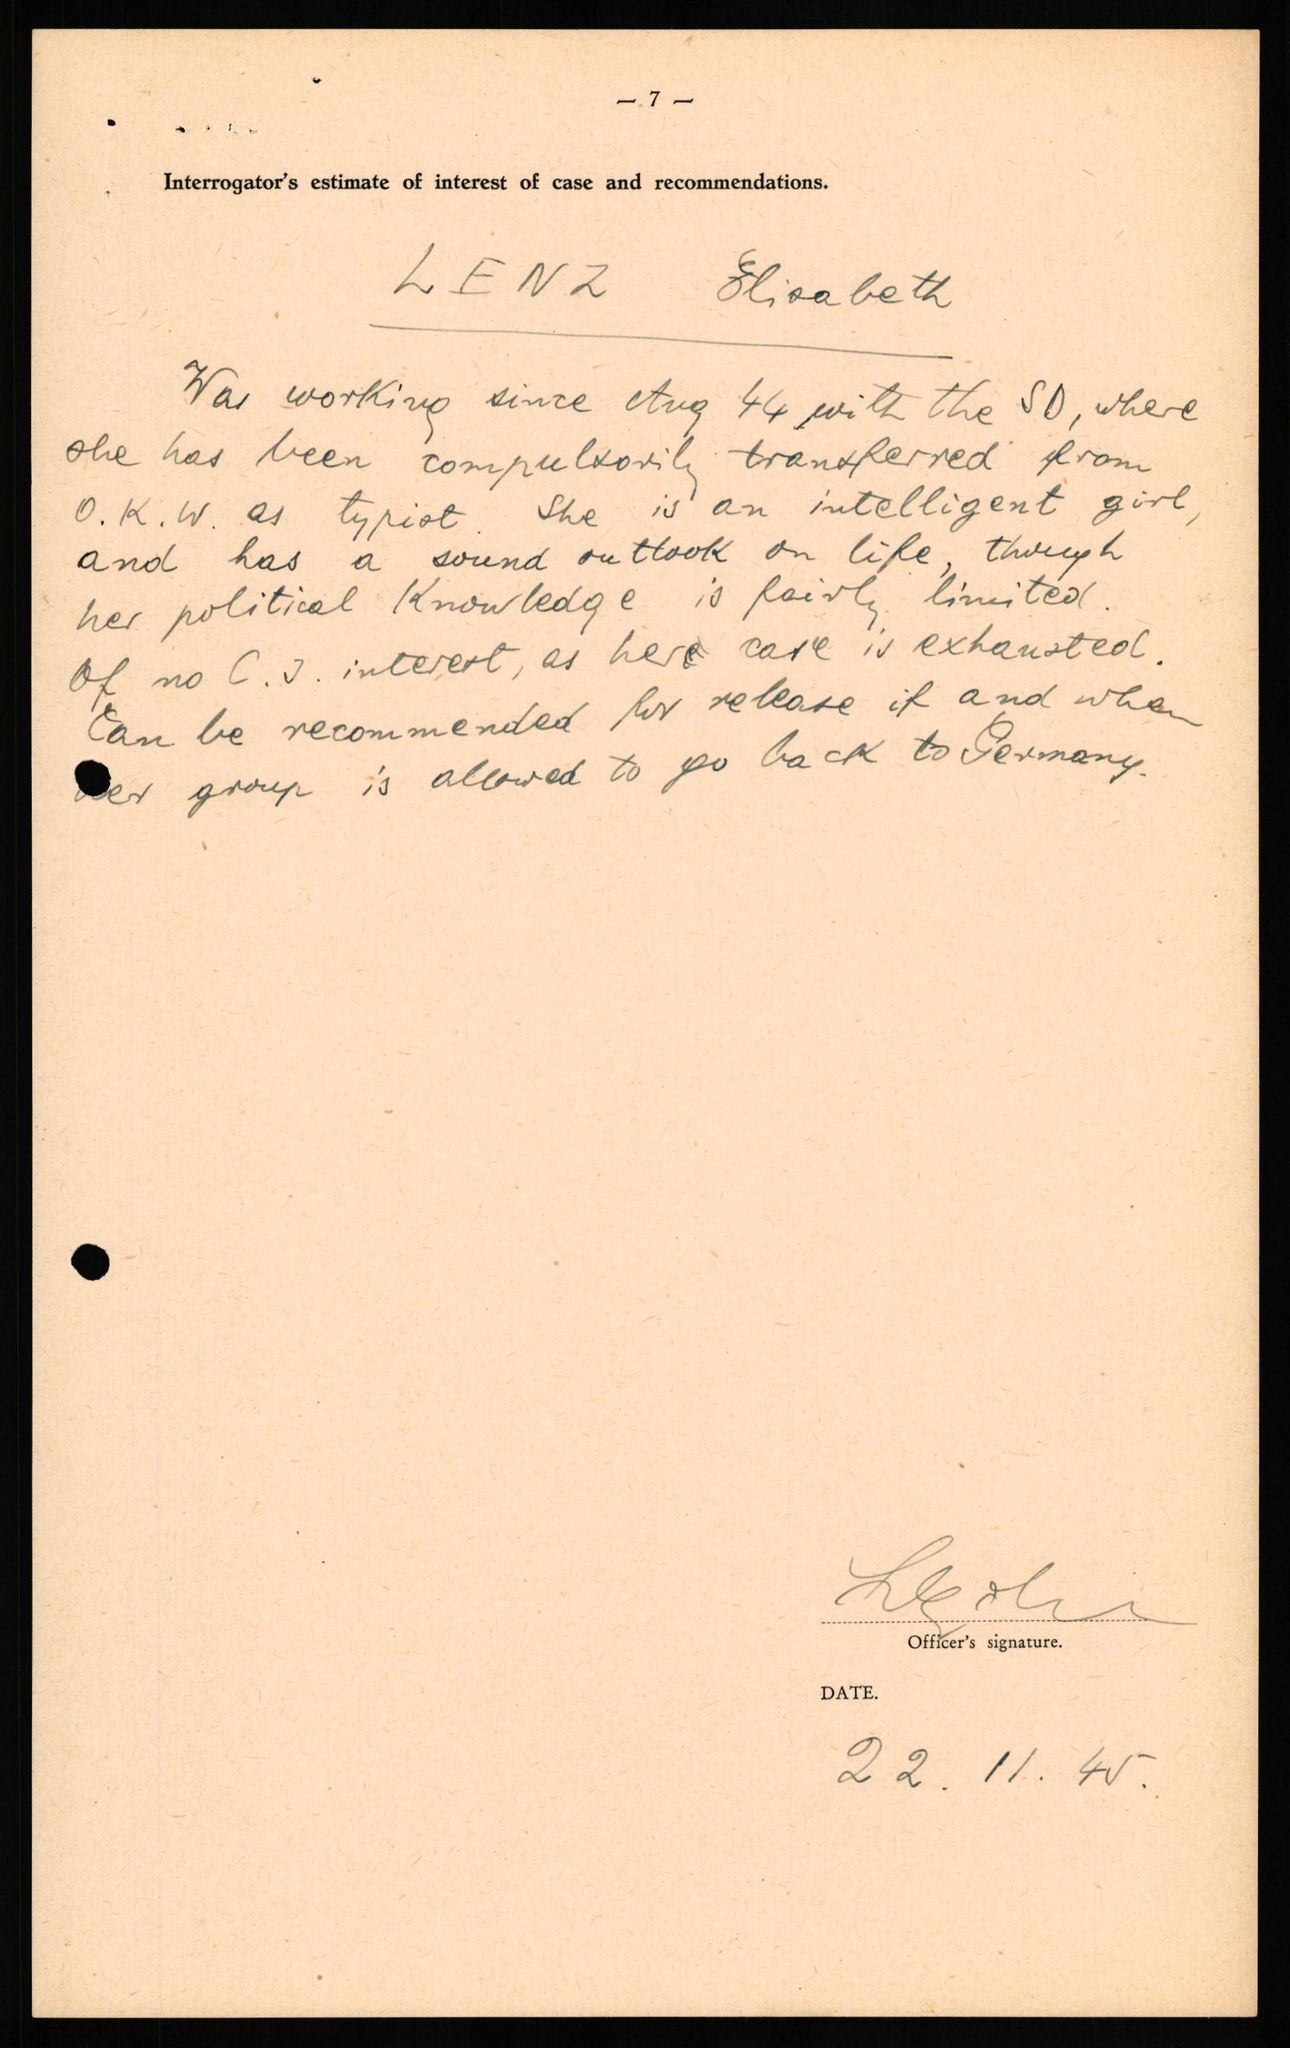 — 7 —
Interrogator's estimate of interest of case and recommendations.
LENZ Elisabeth
Was working since Aug 44 with the SD, where
she has been compulsorily transferred from
O.K.W. as typist. She is an intelligent girl,
and has a sound outlook on life, though
her political knowledge is fairly limited.
Of no C.I. interest, as her case is exhausted.
Can be recommended for release if and when
her group is allowed to go back to Germany.
Officer's signature.
DATE.
22. 11. 45.